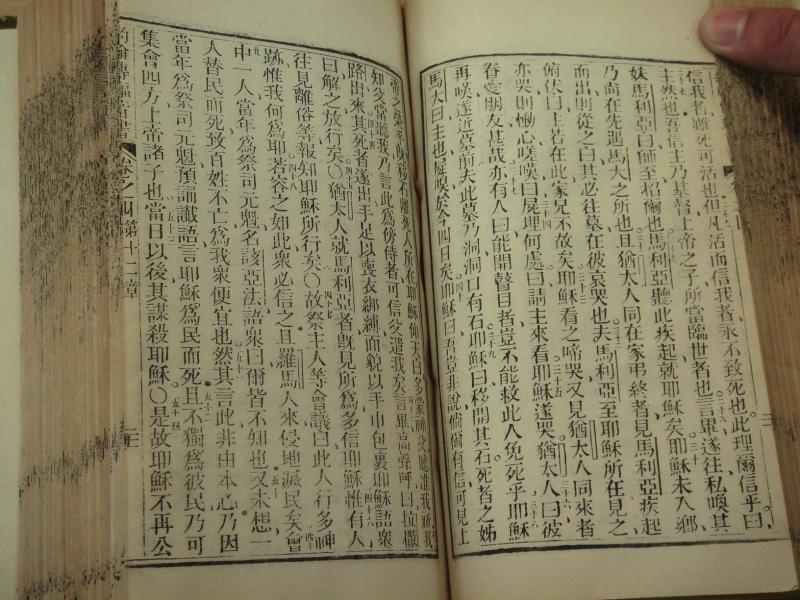 信我者雖死可活也但凡活而信我者永不致死也此理爾信乎曰
主然也吾信主乃基督上帝之子所當臨世者也言畢遂往私喚其
妹馬利亞曰師至招爾也馬利亞聽此疾起就耶穌矣耶穌未入鄉
乃尚在先遇馬大之所也且猶太人同在家弔終者見馬利亞疾起
而出則從之曰其必往墓在彼哀哭也夫馬利亞至耶穌所在見之
俯伏曰主若在此家兄不故矣耶穌看之啼哭又見猶太人同來者
亦哭則慟心嗟嘆曰屍埋何處曰請主來看耶穌遂哭猶太人曰彼
眷愛朋友甚哉亦有人曰能開瞽目者豈不能救此人免死乎耶穌
再嘆遂近墓前夫此墓乃洞洞口有石耶穌曰移開其石死者之姊
馬大曰主也屍嗅矣今四日矣耶穌曰吾豈非說倘爾有信可見上
帝之榮乎既移石離死人所在耶穌仰天曰多蒙神父聽進我祈我
知父常聽我乃言此爲傍侍者可信父遣我矣言畢高聲呼曰拉撒
路出來其死者遂出手足以喪衣綁縛面貌以手巾包裹耶穌語衆
曰解之放行矣〇猶太人就馬利亞者既見所爲多信耶穌惟有人
往見離俗等報知耶穌所行矣〇故祭主人等會議曰此人行多神
跡惟我何爲耶若容之如此衆必信之且羅馬人來侵地滅民矣會
中一人當年爲祭司元魁名該亞法語衆曰爾皆不知也又未想一
人替民而死致百姓不亡爲我衆便宜也然其言此非由本心乃因
當年爲祭司元魁預誦讖語言耶穌爲民而死且不獨爲彼民乃可
集會四方上帝諸子也當日以後其謀殺耶穌〇是故耶穌不再公
約翰傳福音書 卷之四 第十二章